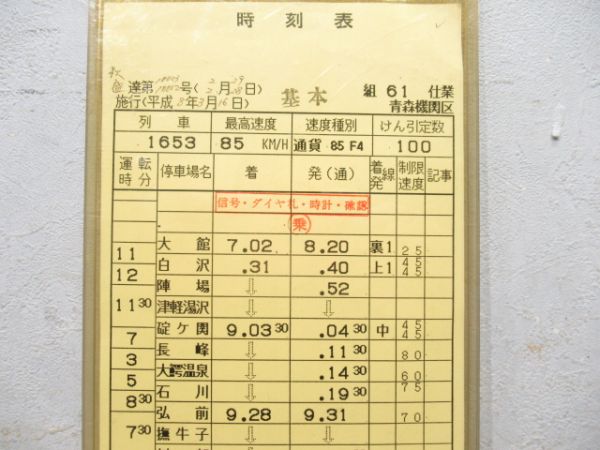 時刻表
達第 号(2月29日)
施行(平成8年3月16日) 基本 組 61 仕業
青森機関区
列車 最高速度 速度種別 けん引定数
1653 85 KM/H 通貨 85 F4 100
運転時分 停車場名 着 発(通) 着発線 制限速度 記事
信号・ダイヤ札・時計・確認
乗
大館 7.02 8.20 裏1 25
11
白沢 .31 .40 上1 45 45
12
陣場 ⇩ .52
11 30
津軽湯沢 ⇩ ⇩
碇ケ関 9.03 30 .04 30 中 45 45
7
長峰 ⇩ .11 30 80
3
大鰐温泉 ⇩ .14 30 60
5
石川 ⇩ .19 30 75
8 30
弘前 9.28 9.31 70
7 30
撫牛子 ⇩ ⇩